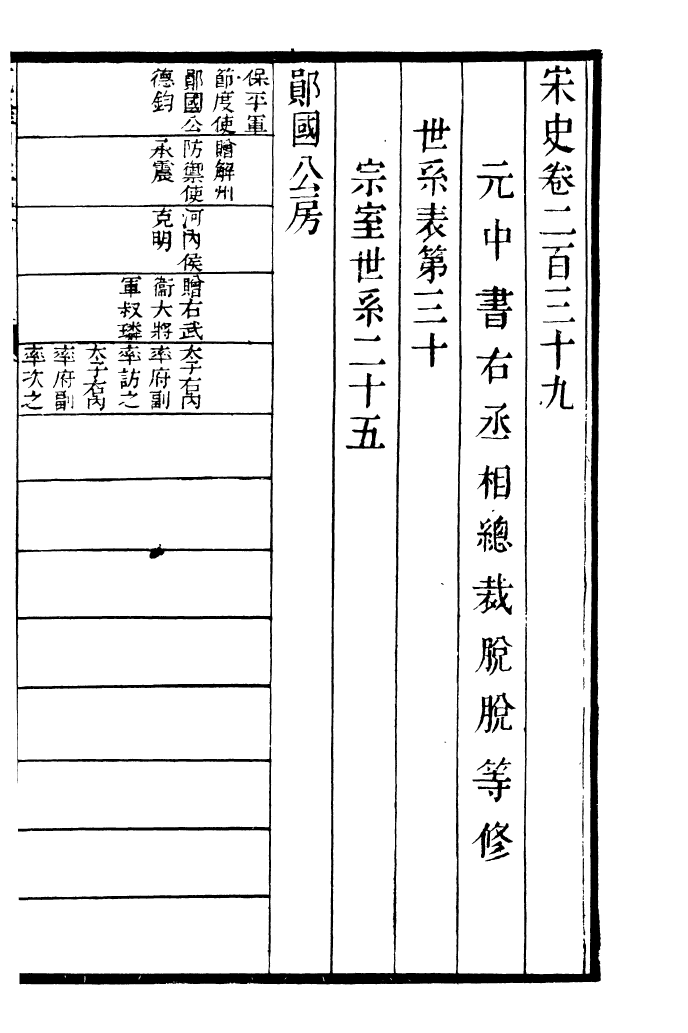 宋史卷二百三十九
元中書右丞相總裁脫脫等修
世系表第三十
宗室世系二十五
鄖國公房
保平軍
節度使
鄖國公
德鈞
贈解州
防禦使
承震
河內侯
克明
贈右武
衞大將
軍叔璘
太子右內
率府副
率訪之
太子右內
率府副
率次之